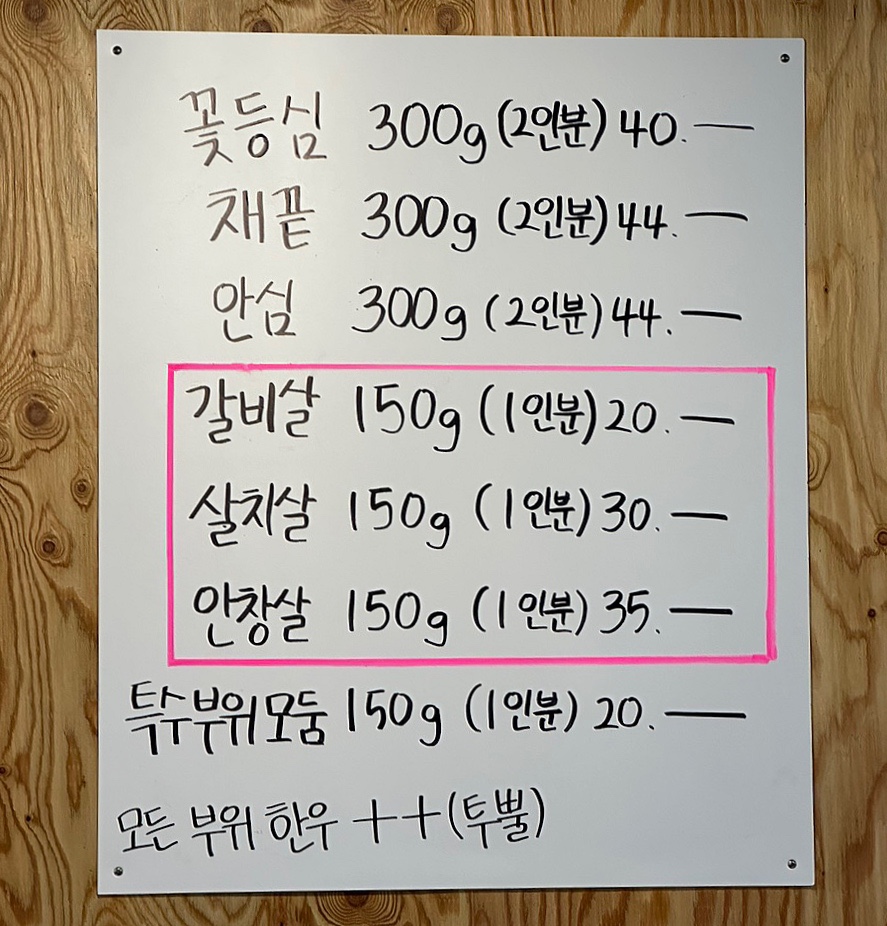 꽃등심 300g (2인분) 40.—
채끝 300g (2인분) 44.—
안심 300g (2인분) 44.—
갈비살 150g (1인분) 20.—
살치살 150g (1인분) 30.—
안창살 150g (1인분) 35.—
특수부위모둠 150g (1인분) 20.—
모든 부위 한우 ++(투뿔)